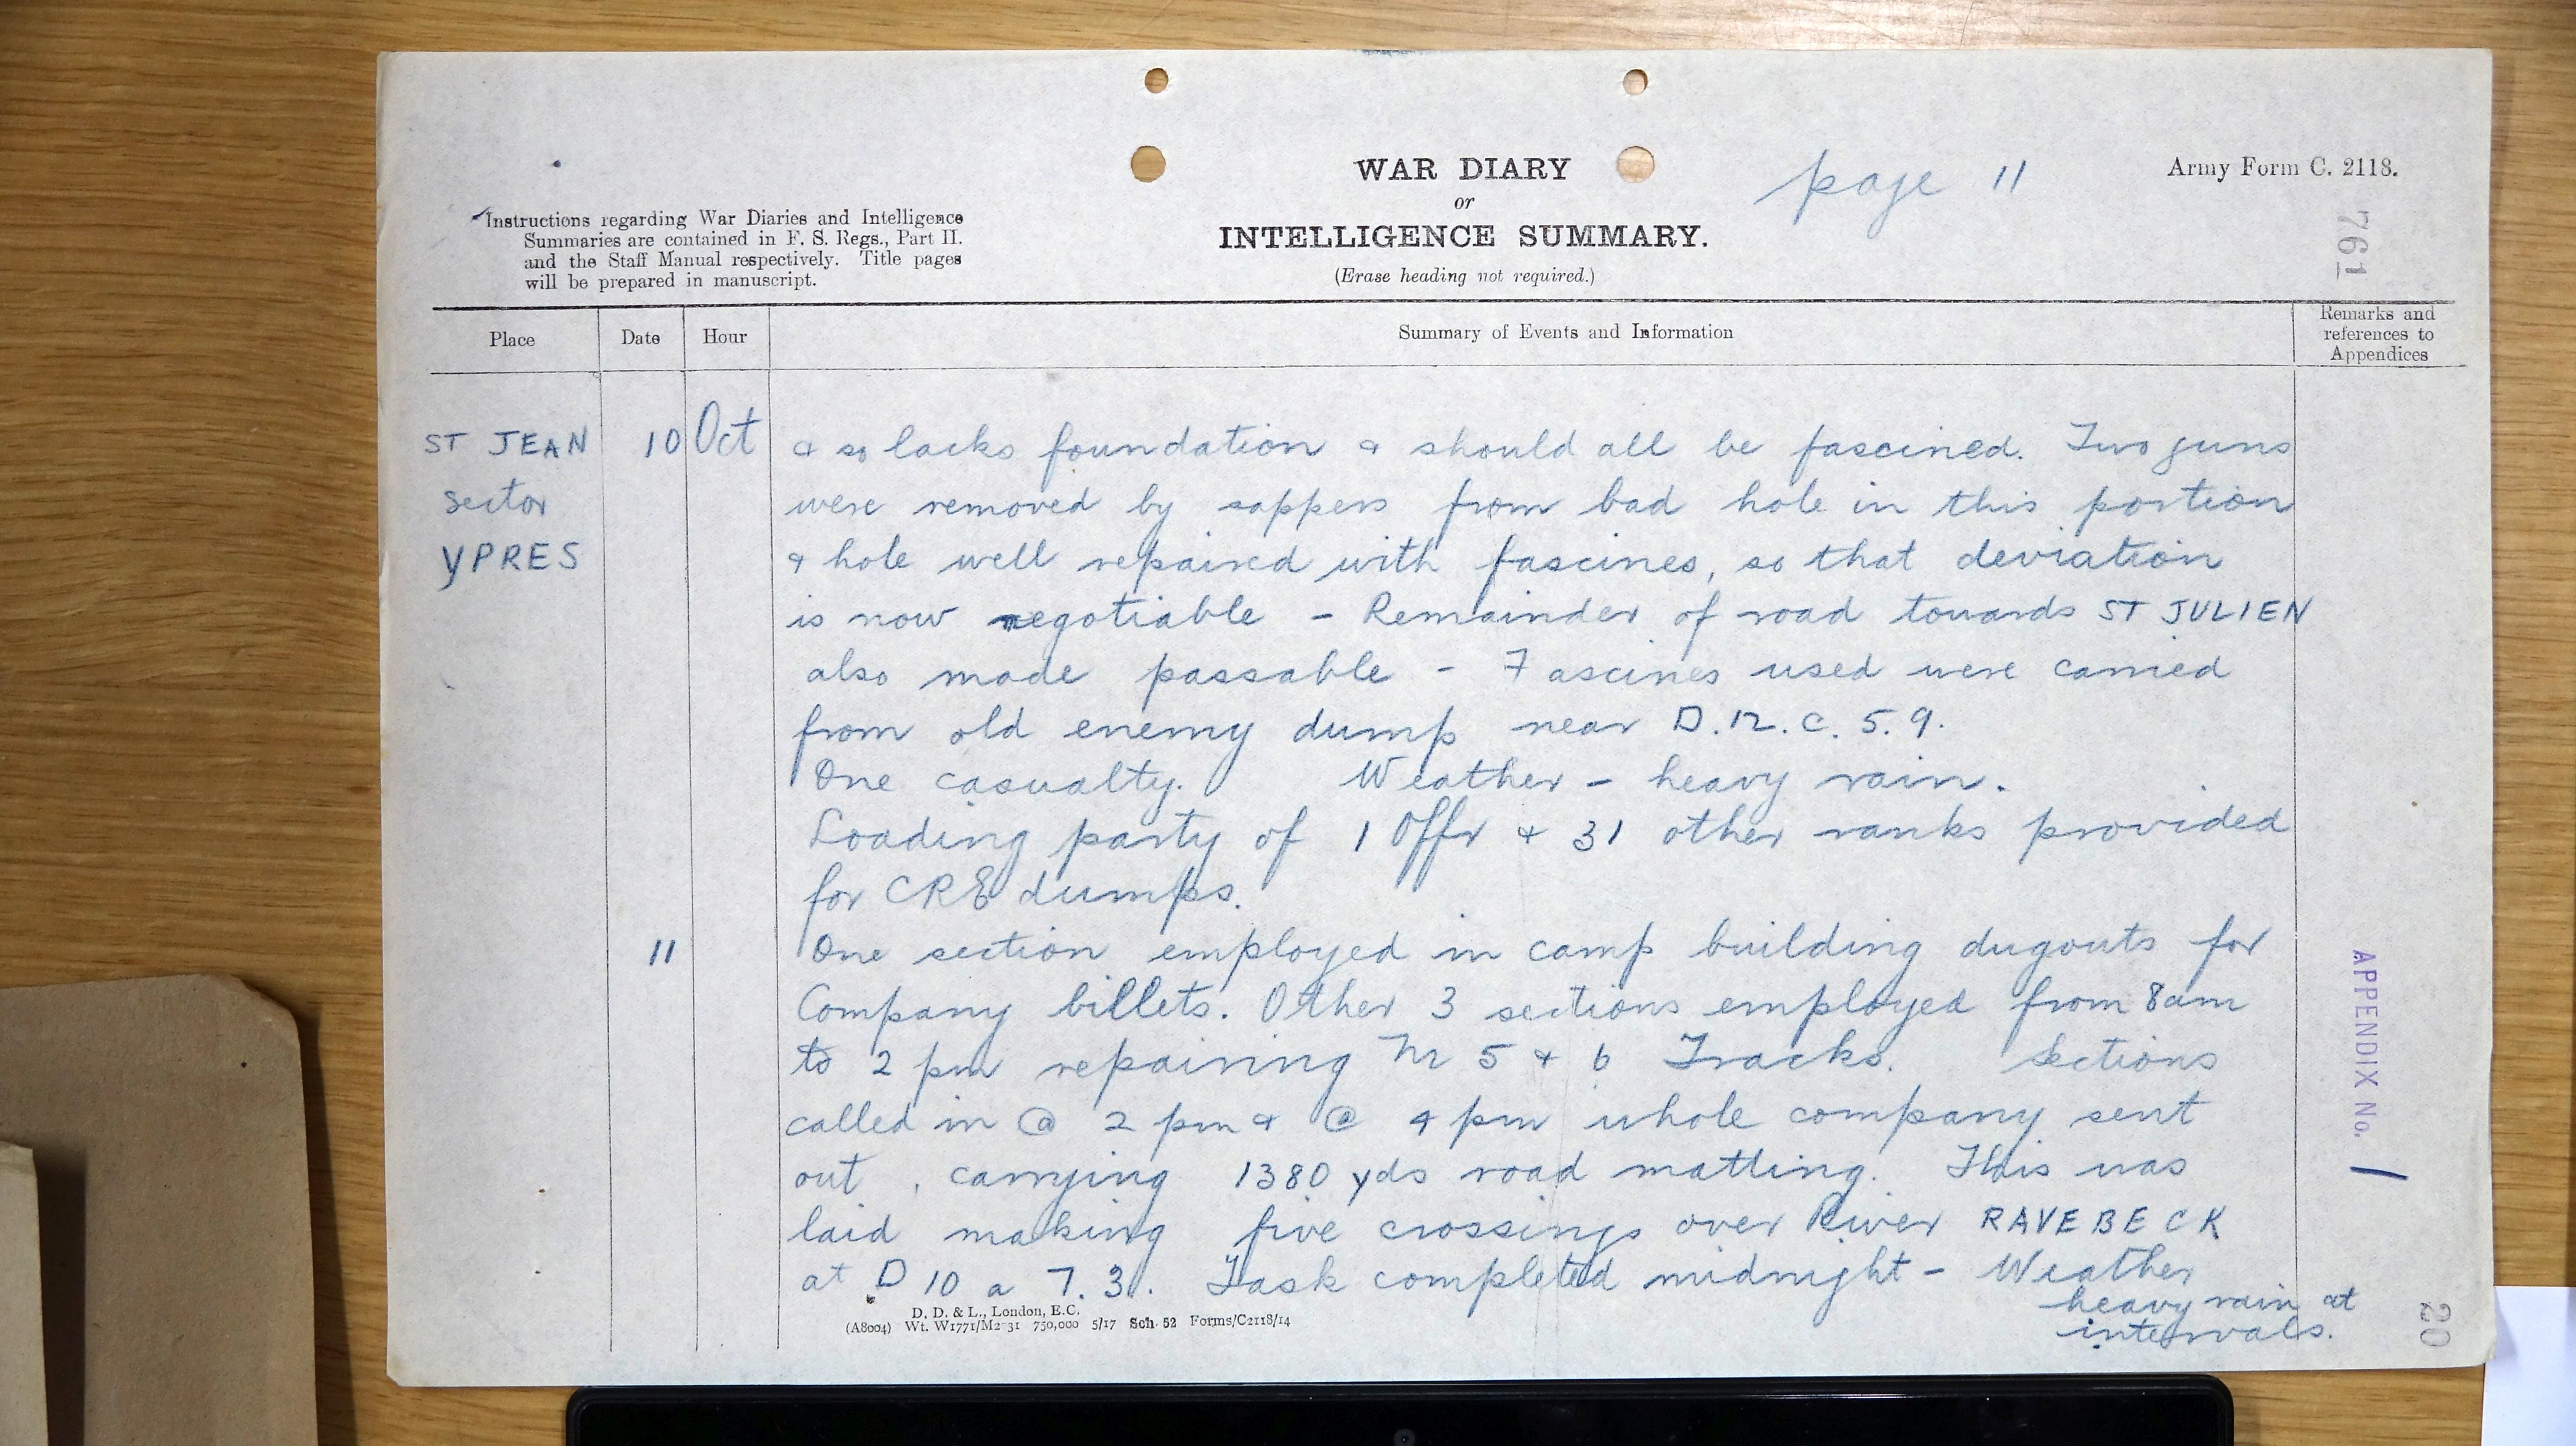 WAR DIARY
or
INTELLIGENCE SUMMARY.
(Erase heading not required.)
page 11
Army Form C. 2118.
761
Instructions regarding War Diaries and Intelligence
Summaries are contained in F. S. Regs., Part II.
and the Staff Manual respectively. Title pages
will be prepared in manuscript.
Place Date Hour Summary of Events and Information Remarks and references to Appendices
ST JEAN 10 Oct & so lacks foundation & should all be fascined. Two guns
sector were removed by sappers from bad hole in this portion
YPRES & hole well repaired with fascines, so that deviation
is now negotiable - Remainder of road towards ST JULIEN
also made passable - Fascines used were carried
from old enemy dump near D.12.C.5.9.
One casualty. Weather - heavy rain.
Loading party of 1 Offr & 31 other ranks provided
for CRE dumps.
11 One section employed in camp building dugouts for
Company billets. Other 3 sections employed from 8am
to 2 pm repairing Nr 5 & 6 Tracks. Sections
called in @ 2 pm & @ 4 pm whole company sent
out, carrying 1380 yds road matting. This was
laid making five crossings over River RAVEBECK
at D 10 a 7.3. Task completed midnight - Weather
heavy rain at
intervals.
APPENDIX No. 1
20
D. D. & L., London, E.C.
(A8004) Wt. W1771/M2-31 750,000 5/17 Sch. 52 Forms/C2118/14